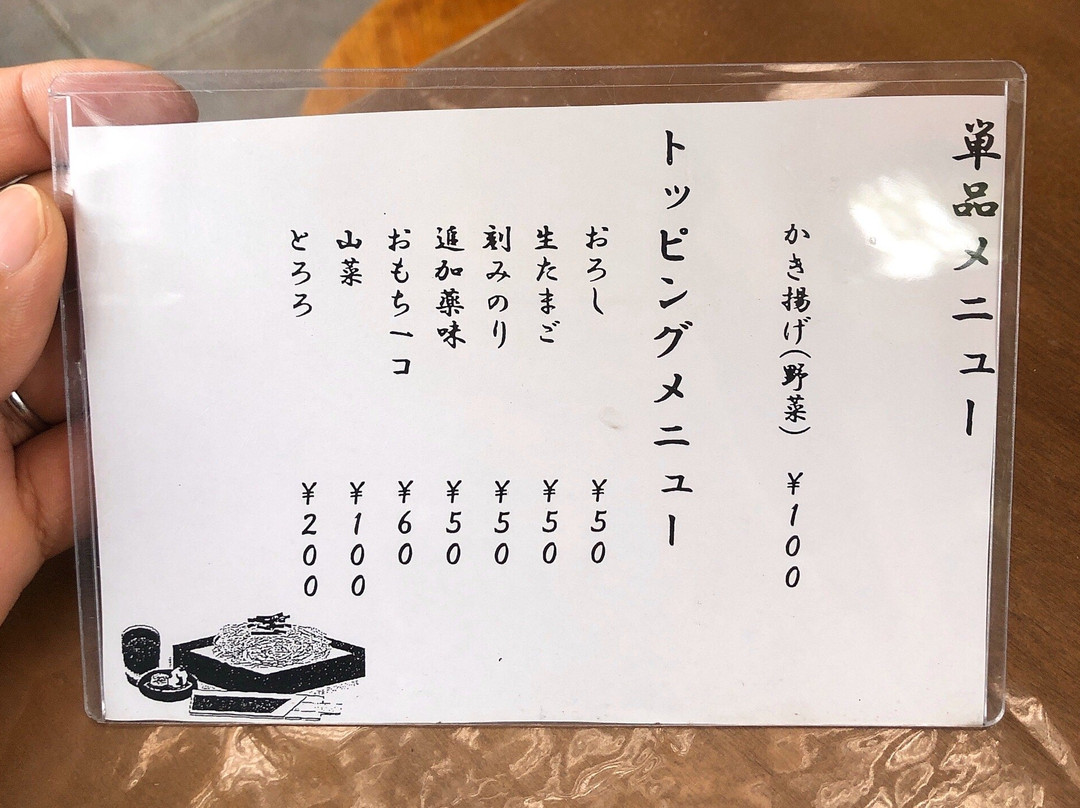 単品メニュー
かき揚げ(野菜) ¥100
トッピングメニュー
おろし ¥50
生たまご ¥50
刻みのり ¥50
追加薬味 ¥50
おもち一コ ¥60
山菜 ¥100
とろろ ¥200